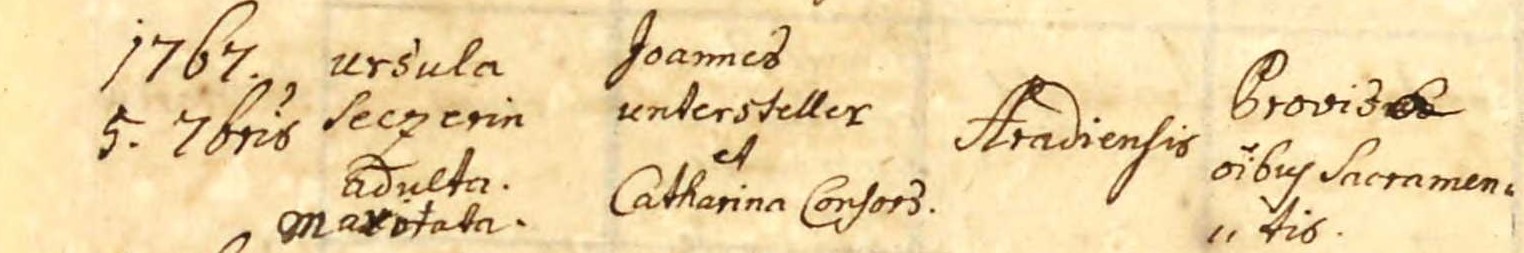 1767.
5. 7bris
ursula
Seczerin
adulta.
maritata.
Joannes
untersteller
et
Catharina Consors.
Aradiensis
Provisa
oibus Sacramen„
„tis.